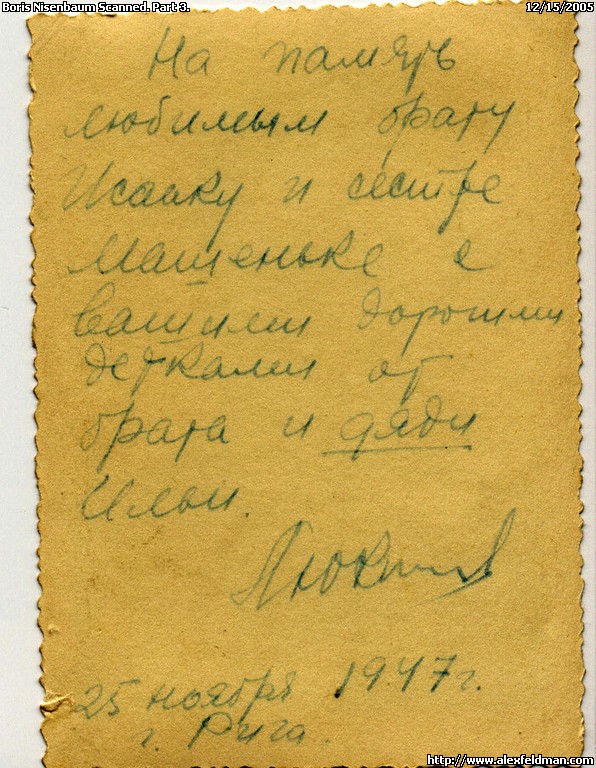 Boris Nisenbaum Scanned. Part 3.
12/15/2005
На память
любимым брату
Исааку и сестре
Машеньке с
вашими дорогими
детками от
брата и дяди
Ильи.
25 ноября 1947 г.
г. Рига.
http://www.alexfeldman.com/